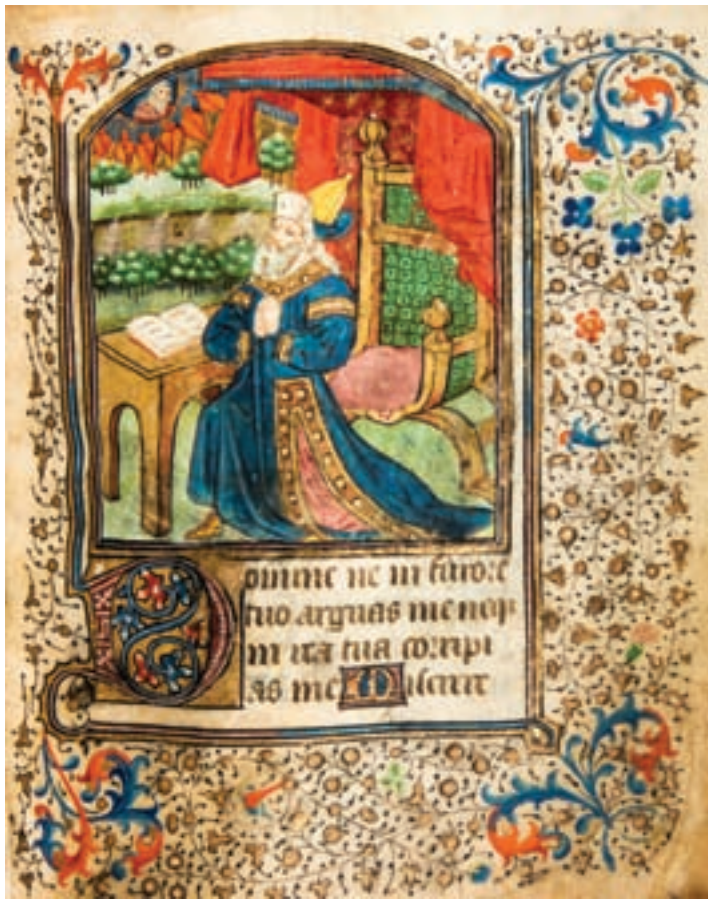 Domine ne in furore
tuo arguas me neq
in ira tua corripi
as me Miserere